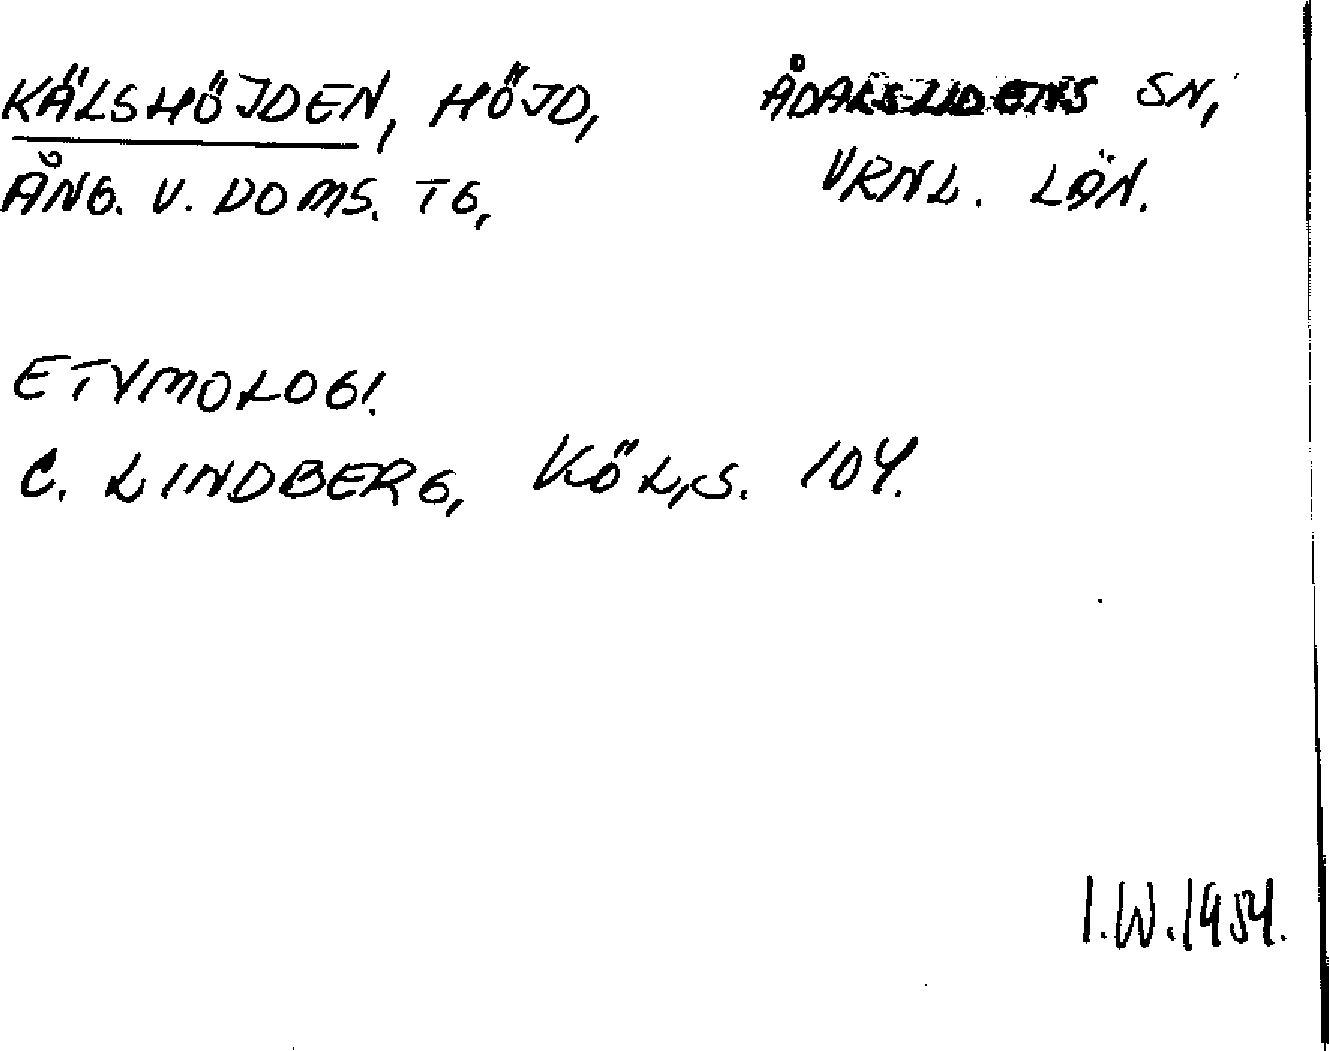 KÄLSHÖJDEN, HÖJD, ÅDALSLIDENS SN,
ÅNG. V. DOMS. TG, VRNL. LÄN.
ETYMOLOGI.
C. LINDBERG, KÖL, S. 104.
I.W. 1954.